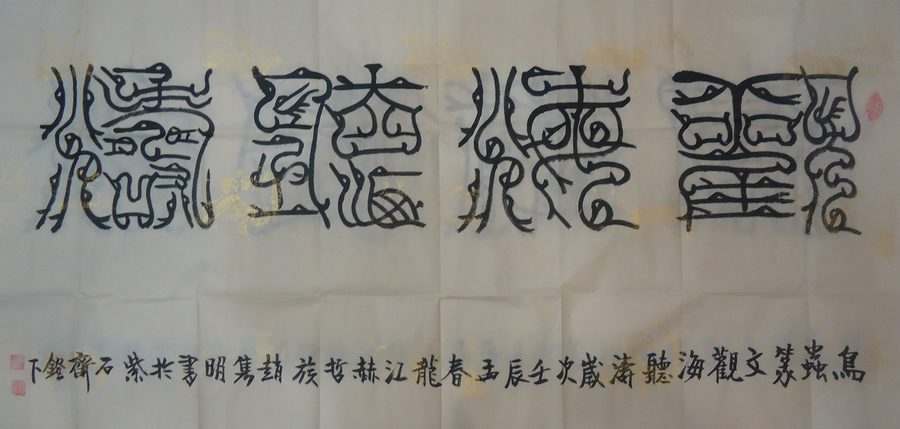 觀海聽濤
鳥蟲篆文觀海聽濤歲次壬辰孟春龍江赫哲族趙隽明書於紫石齋鐙下